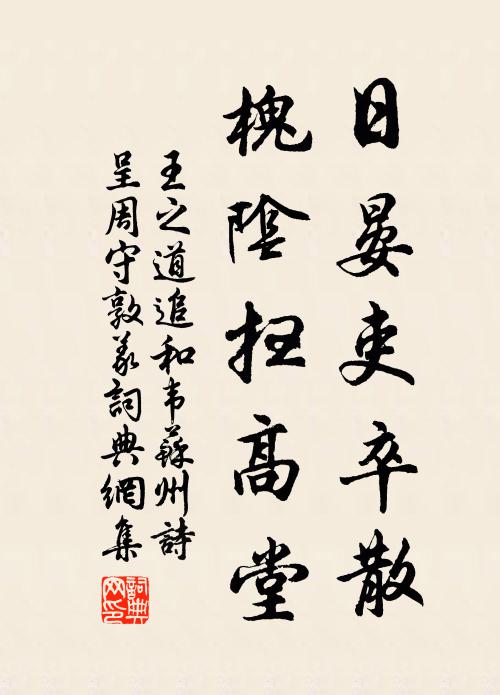 日晏吏卒散
槐陰扫高堂
王之道追和韦蘇州詩
呈周守敦义詞典網集
詞典网印